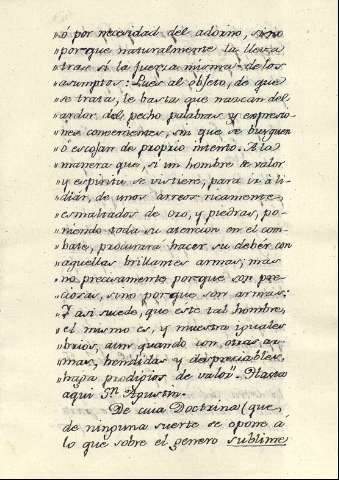 "ó por necesidad del adorno, sino
"porque naturalmente la lleva
"tras sí la fuerza misma de los
"asumptos: Pues al objeto, de que
"se trata, le basta que nazcan del
"ardor del pecho palabras y expresio-
"nes concernientes, sin que se busquen
"ó escojan de proprio intento. A la
"manera que, si un hombre de valor
"y espiritu se vistiere, para ir á li-
"diár, de unos arreos ricamente
"esmaltados de oro, y piedras, po-
"niendo toda su atencion en el com-
"bate, procurará hacer su deber con
"aquellas brillantes armas; mas
"no precisamente porque son pre-
"ciosas, sino porque son armas:
"Y asi sucede, que este tal hombre,
"el mismo es, y muestra iguales
"brios, aun quando con otras ar-
"mas, hendidas y despreciables,
"haga prodigios de valor". Hasta
aqui Sn. Agustin.
De cuia Doctrina (que
de ninguna suerte se opone á
lo que sobre el genero sublime